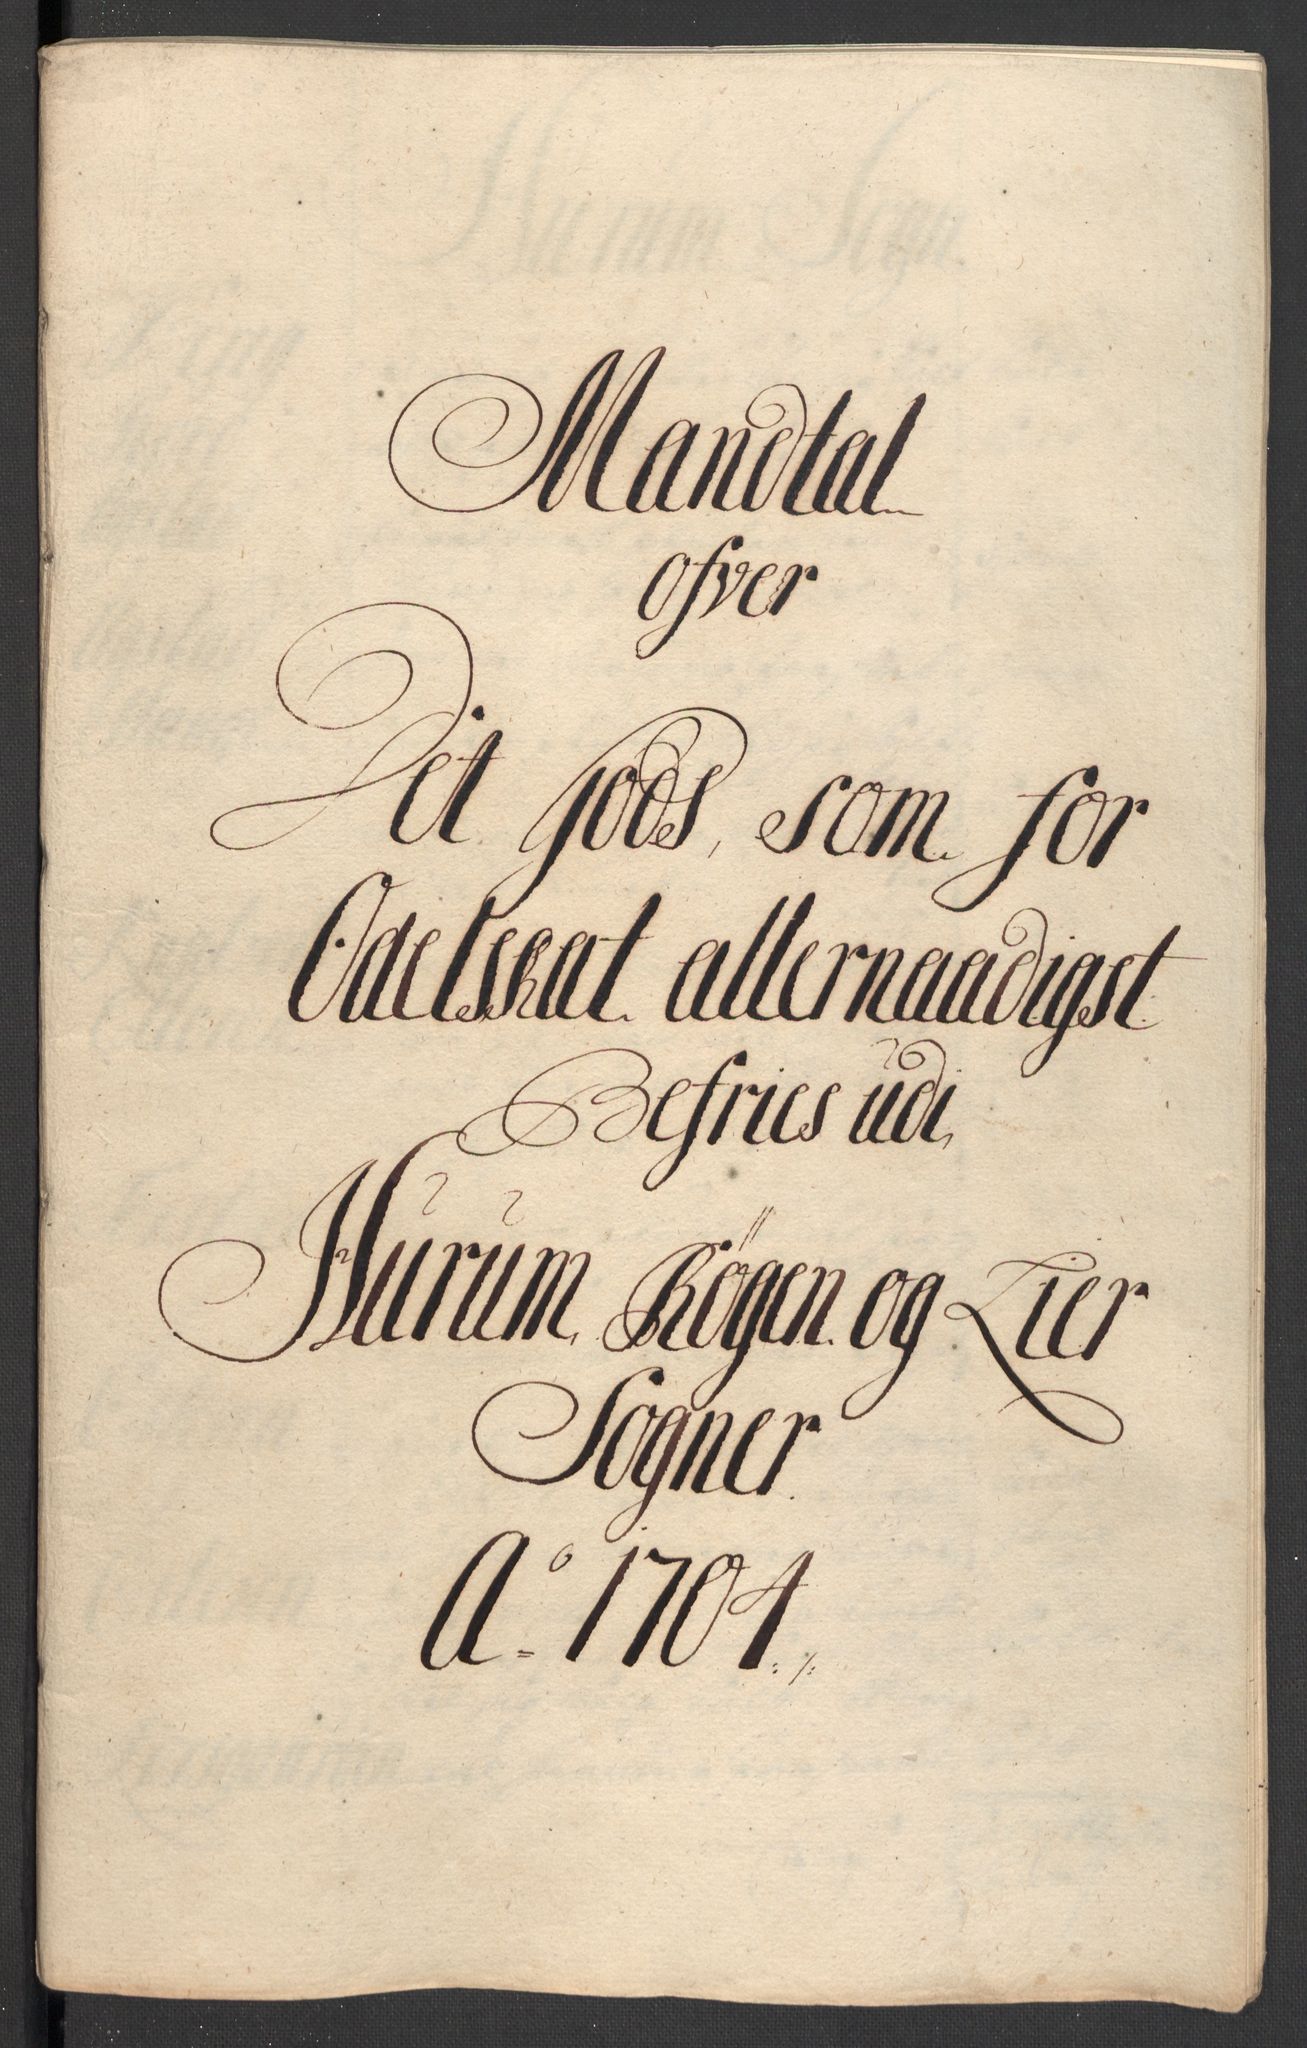 Mandtal
ofver
Det gods, som for
Odelskat allernaadigst
Befries udi,
Hurum, Røgen og Lier
Sogner
Ao 1704./.